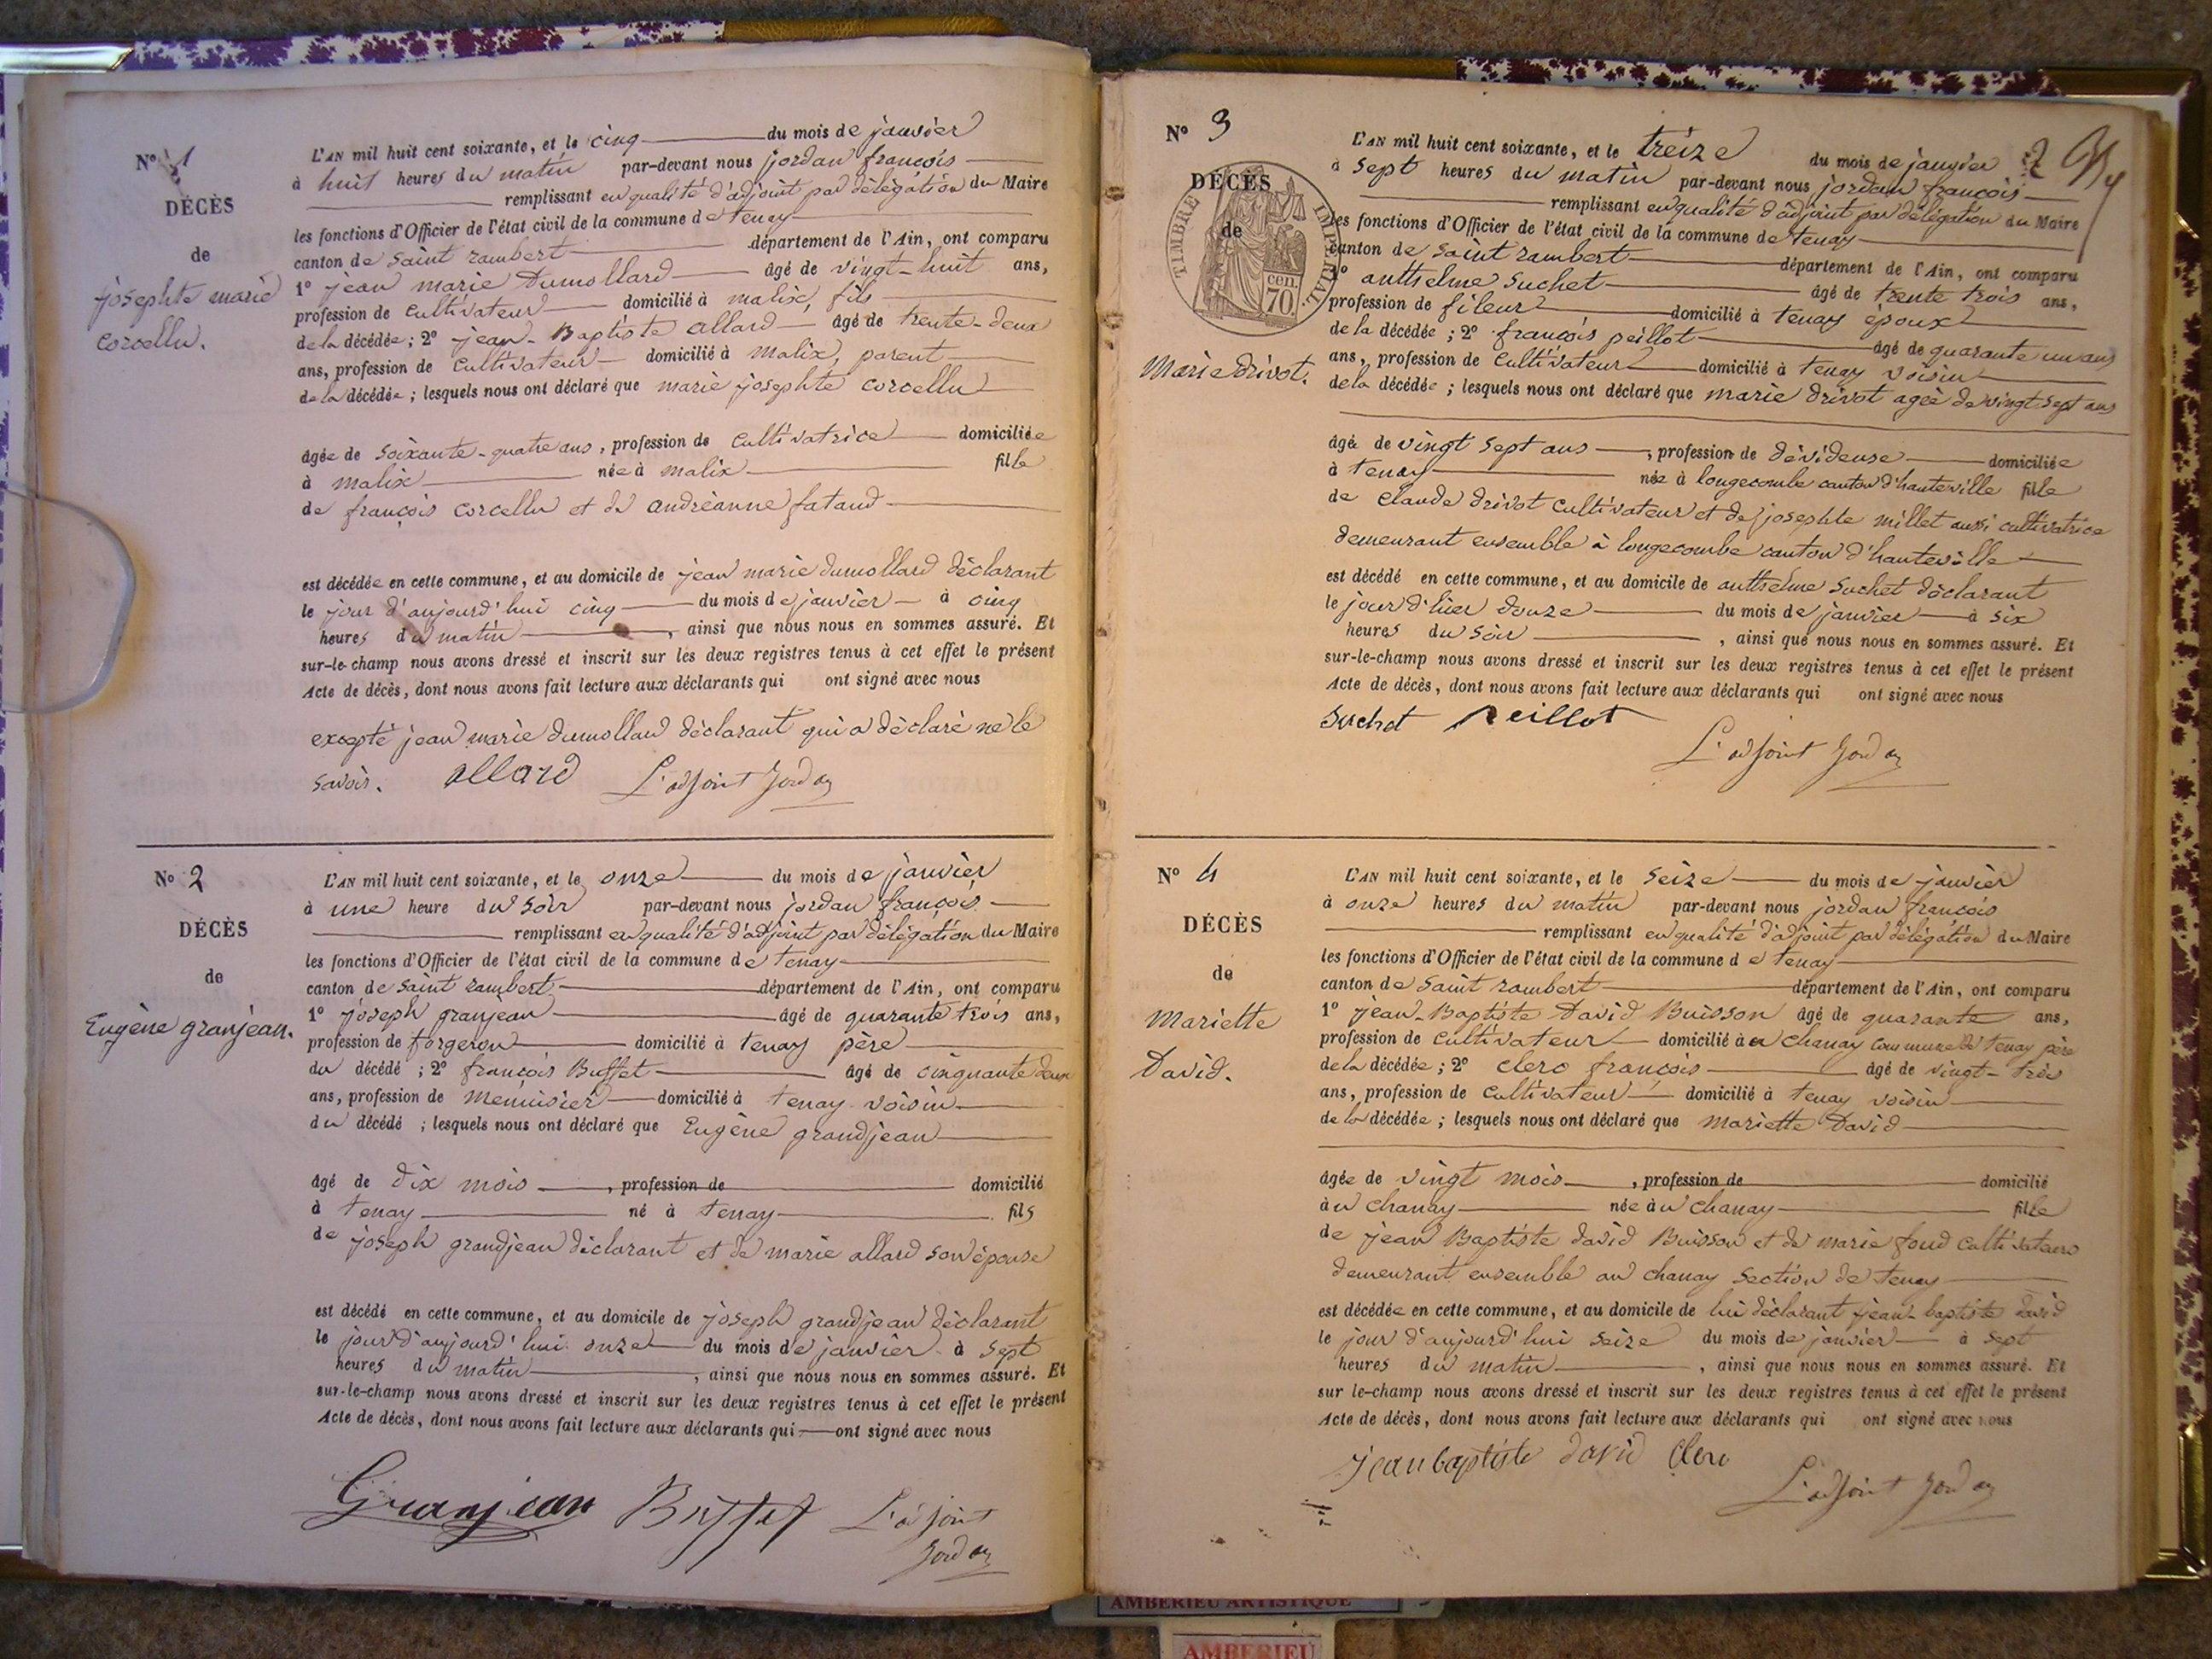 N° 1
DÉCÈS
de
josephte marie
corcellu.
L'AN mil huit cent soixante, et le cinq du mois de janvier
à huit heures du matin par-devant nous jordan françois
remplissant en qualité d'adjoint par délégation du Maire
les fonctions d'Officier de l'état civil de la commune de tenay
canton de saint rambert département de l'Ain, ont comparu
1° jean marie Dumollard âgé de vingt-huit ans,
profession de cultivateur domicilié à malix, fils
de la décédée ; 2° jean-Baptiste allard âgé de trente-deux
ans, profession de cultivateur domicilié à malix, parent
de la décédée ; lesquels nous ont déclaré que marie josephte corcellu
âgée de soixante-quatre ans, profession de cultivatrice domiciliée
à malix née à malix fille
de françois corcellu et de andréanne fataud
est décédée en cette commune, et au domicile de jean marie dumollard déclarant
le jour d'aujourd'hui cinq du mois de janvier à cinq
heures du matin, ainsi que nous nous en sommes assuré. Et
sur-le-champ nous avons dressé et inscrit sur les deux registres tenus à cet effet le présent
Acte de décès, dont nous avons fait lecture aux déclarants qui ont signé avec nous
excepté jean marie dumollard déclarant qui a déclaré ne le
savoir. allard L'adjoint Jordan
N° 2
DÉCÈS
de
Eugène granjean.
L'AN mil huit cent soixante, et le onze du mois de janvier
à une heure du soir par-devant nous jordan françois
remplissant en qualité d'adjoint par délégation du Maire
les fonctions d'Officier de l'état civil de la commune de tenay
canton de saint rambert département de l'Ain, ont comparu
1° joseph granjean âgé de quarante trois ans,
profession de forgeron domicilié à tenay père
du décédé ; 2° françois Buffet âgé de cinquante deux
ans, profession de menuisier domicilié à tenay voisin
du décédé ; lesquels nous ont déclaré que Eugène grandjean
âgé de dix mois, profession de domicilié
à tenay né à tenay fils
de joseph grandjean déclarant et de marie allard son épouse
est décédé en cette commune, et au domicile de joseph grandjean déclarant
le jour d'aujourd'hui onze du mois de janvier à sept
heures du matin, ainsi que nous nous en sommes assuré. Et
sur-le-champ nous avons dressé et inscrit sur les deux registres tenus à cet effet le présent
Acte de décès, dont nous avons fait lecture aux déclarants qui ont signé avec nous
Granjean Buffet L'adjoint
Jordan
N° 3
DÉCÈS
de
TIMBRE IMPÉRIAL
70 cen.
Marie drivot.
2
L'AN mil huit cent soixante, et le treize du mois de janvier
à sept heures du matin par-devant nous jordan françois
remplissant en qualité d'adjoint par délégation du Maire
les fonctions d'Officier de l'état civil de la commune de tenay
canton de saint rambert département de l'Ain, ont comparu
1° anthelme Suchet âgé de trente trois ans,
profession de fileur domicilié à tenay époux
de la décédée ; 2° françois peillot âgé de quarante un ans
ans, profession de cultivateur domicilié à tenay voisin
de la décédée ; lesquels nous ont déclaré que marie drivot agée de vingt sept ans
âgée de vingt sept ans, profession de dévideuse domiciliée
à tenay née à longecombe canton d'hauteville fille
de claude drivot cultivateur et de josephte millet aussi cultivatrice
demeurant ensemble à longecombe canton d'hauteville
est décédé en cette commune, et au domicile de anthelme Suchet déclarant
le jour d'hier douze du mois de janvier à six
heures du soir, ainsi que nous nous en sommes assuré. Et
sur-le-champ nous avons dressé et inscrit sur les deux registres tenus à cet effet le présent
Acte de décès, dont nous avons fait lecture aux déclarants qui ont signé avec nous
Suchet Peillot
L'adjoint Jordan
N° 4
DÉCÈS
de
Mariette
David.
L'AN mil huit cent soixante, et le seize du mois de janvier
à onze heures du matin par-devant nous jordan françois
remplissant en qualité d'adjoint par délégation du Maire
les fonctions d'Officier de l'état civil de la commune de tenay
canton de saint rambert département de l'Ain, ont comparu
1° jean-Baptiste David Buisson âgé de quarante ans,
profession de cultivateur domicilié à chanay commune de tenay père
de la décédée ; 2° clerc françois âgé de vingt-trois
ans, profession de cultivateur domicilié à tenay voisin
de la décédée ; lesquels nous ont déclaré que mariette David
âgée de vingt mois, profession de domicilié
à au chanay née à au chanay fille
de jean Baptiste david Buisson et de marie foud cultivateurs
demeurant ensemble au chanay section de tenay
est décédée en cette commune, et au domicile de lui déclarant jean-baptiste david
le jour d'aujourd'hui seize du mois de janvier à sept
heures du matin, ainsi que nous nous en sommes assuré. Et
sur le-champ nous avons dressé et inscrit sur les deux registres tenus à cet effet le présent
Acte de décès, dont nous avons fait lecture aux déclarants qui ont signé avec nous
jean baptiste david Clerc
L'adjoint Jordan
AMBERIEU ARTISTIQUE
AMBERIEU